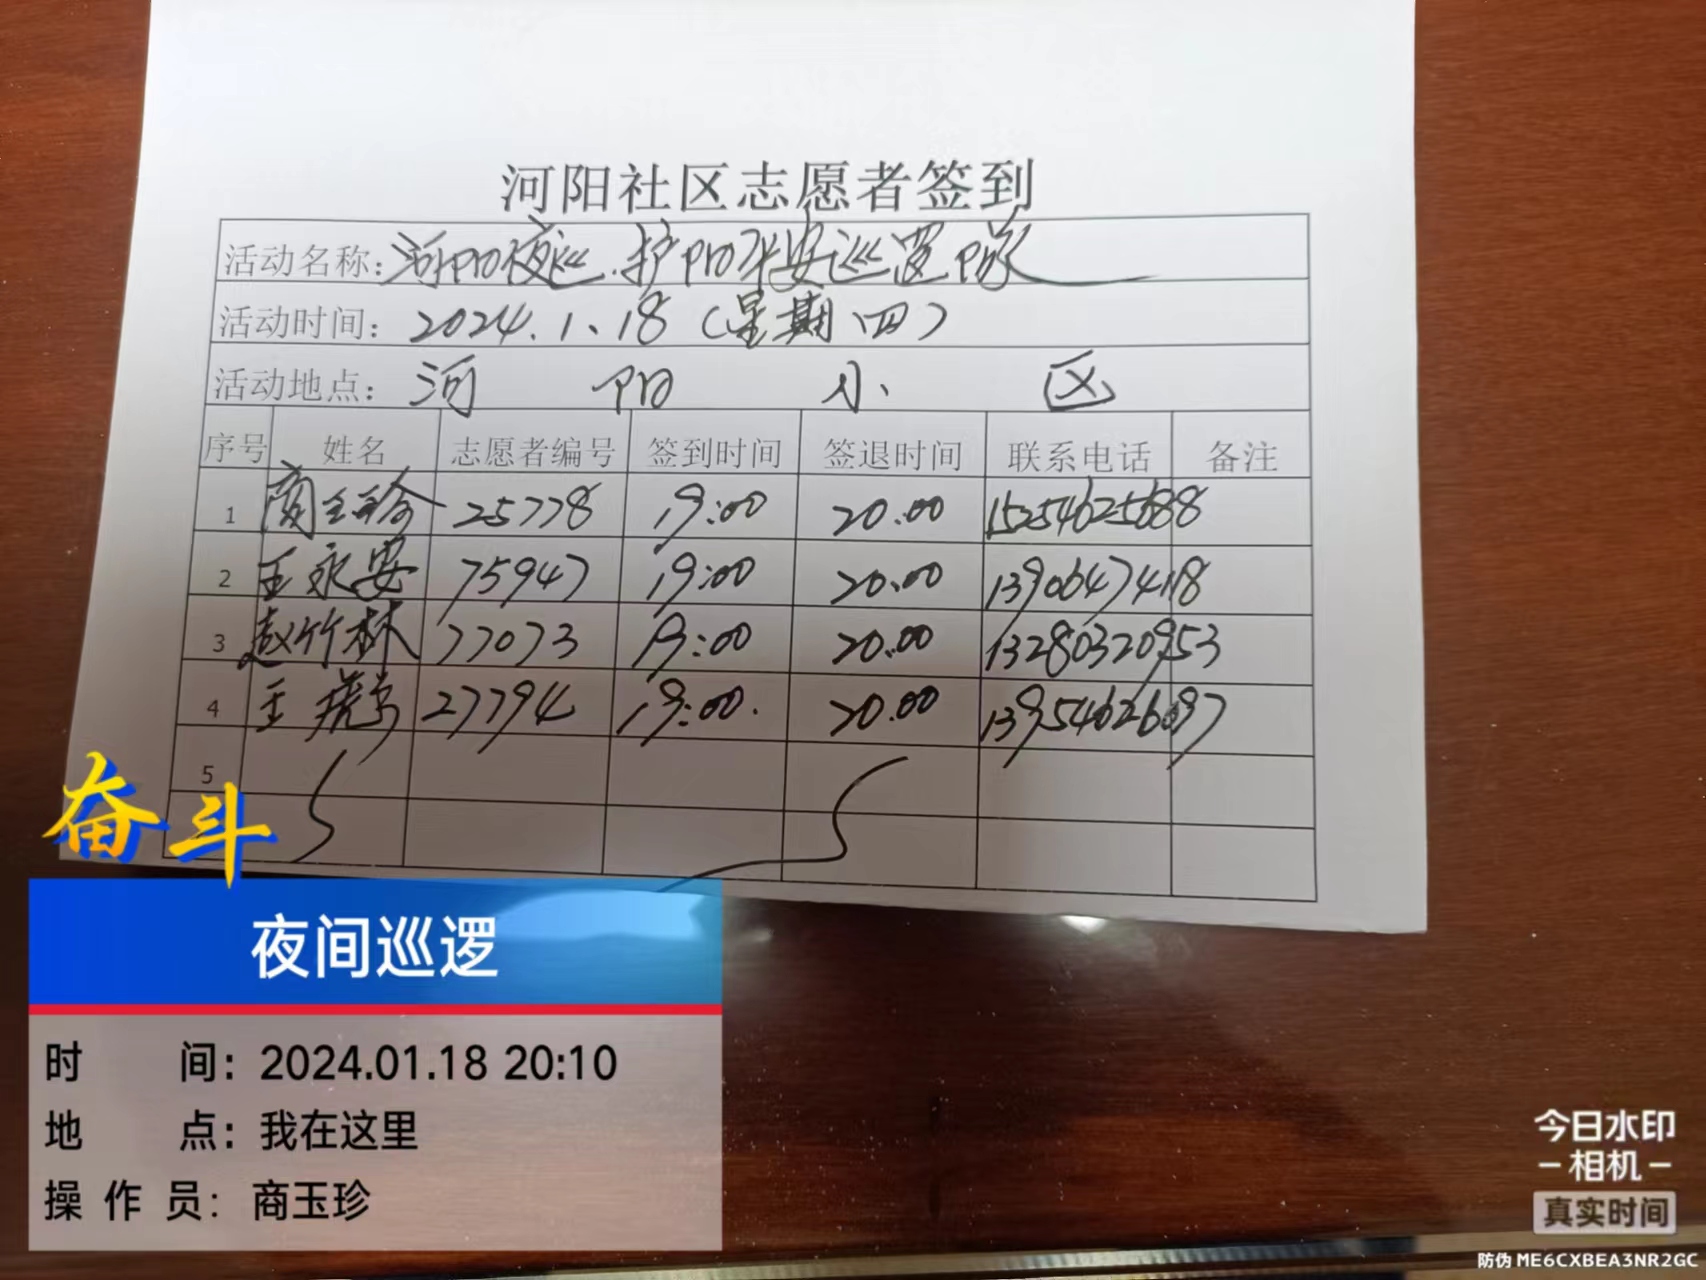 河阳社区志愿者签到
活动名称: 河阳夜巡.护阳平安巡逻队
活动时间: 2024.1.18(星期四)
活动地点: 河 阳 小 区
序号 姓名 志愿者编号 签到时间 签退时间 联系电话 备注
1 商玉珍 25778 19:00 20.00 15254625688
2 王永安 75947 19:00 20.00 13906474118
3 赵竹林 77073 19:00 20.00 13280320953
4 王 27794 19:00. 20.00 13954626097
5
奋斗
夜间巡逻
时 间: 2024.01.18 20:10
地 点: 我在这里
操 作 员: 商玉珍
今日水印
-相机-
真实时间
防伪 ME6CXBEA3NR2GC